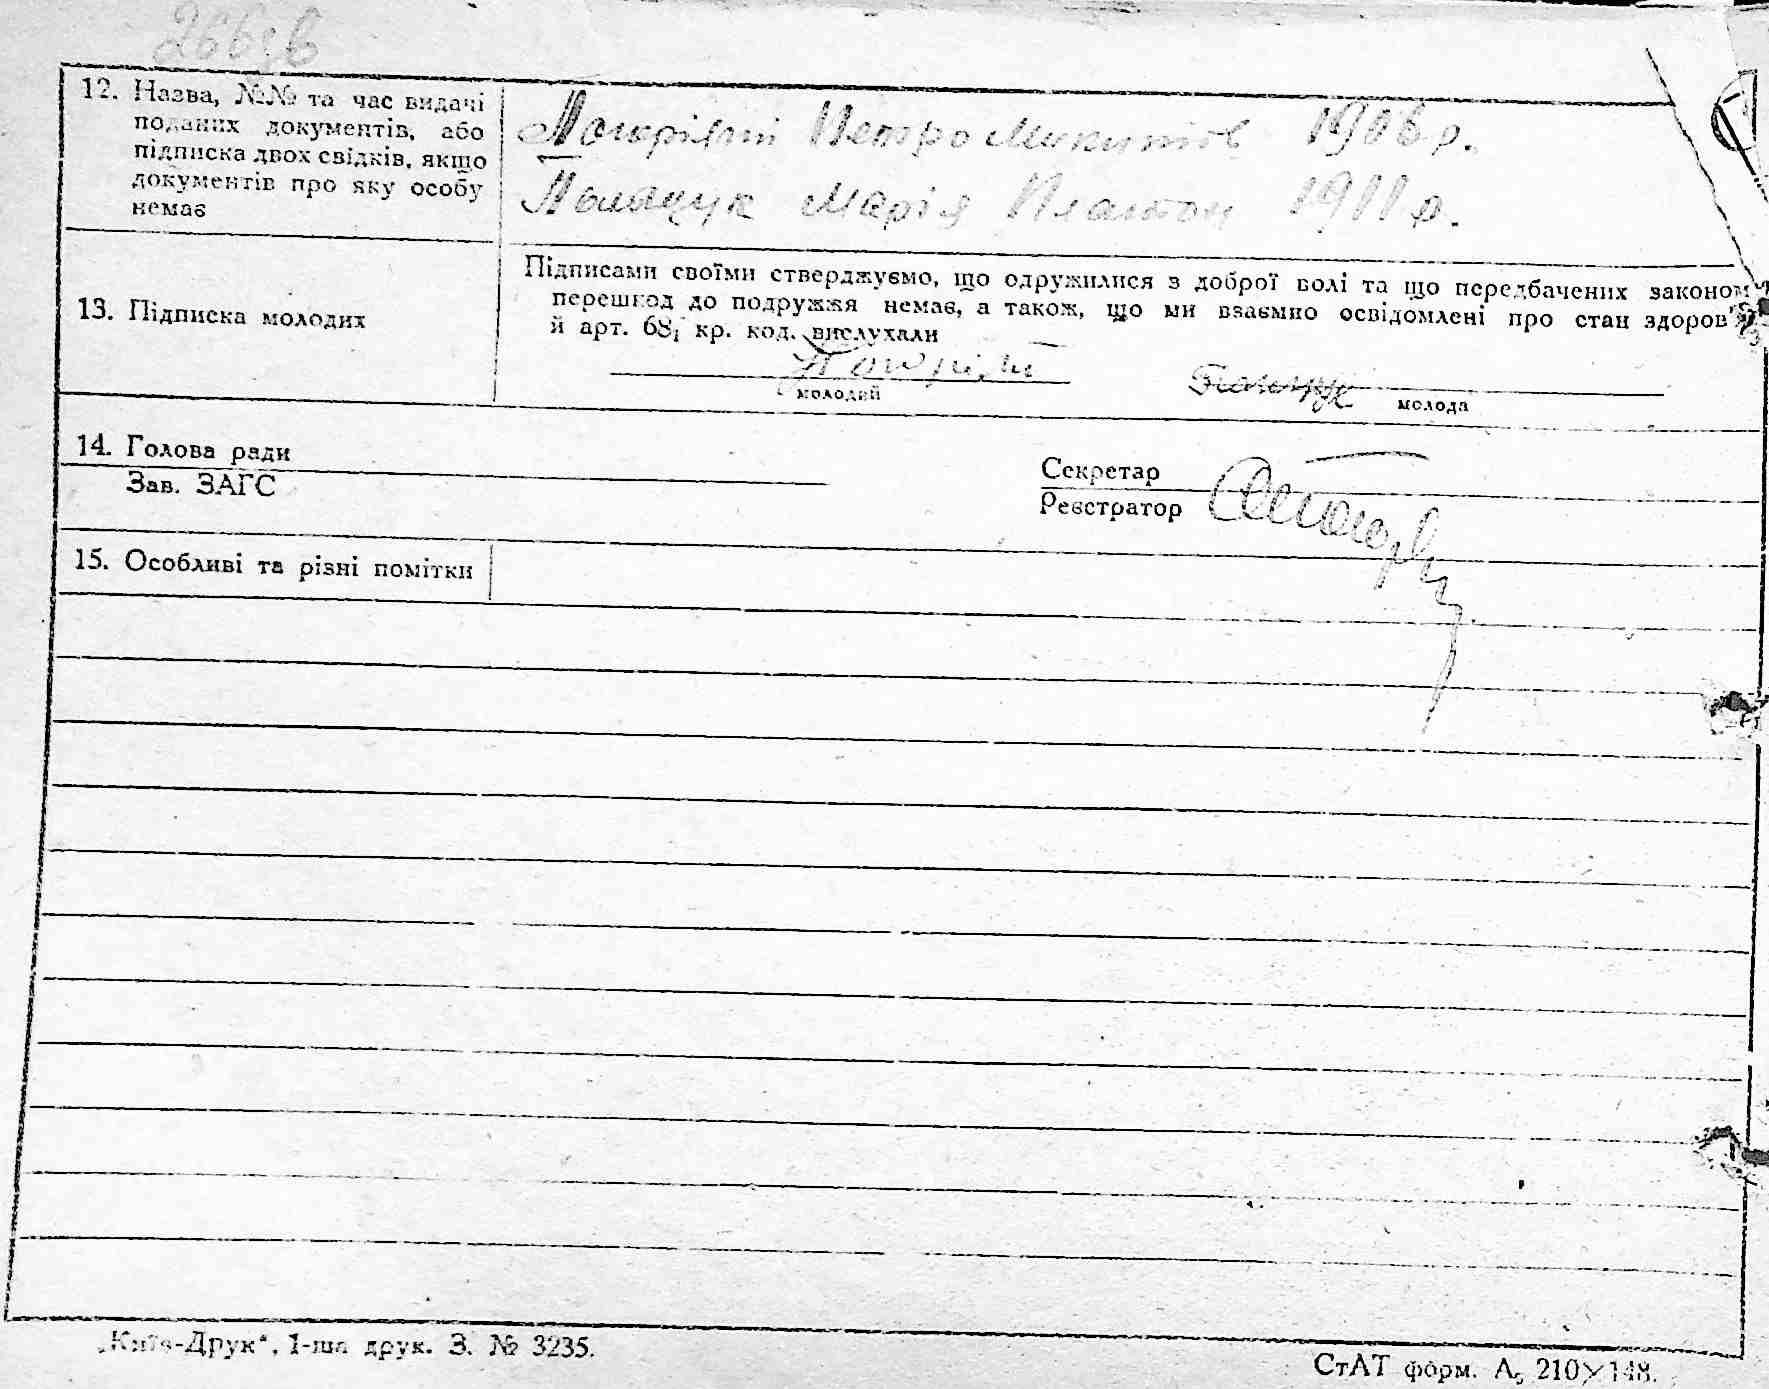 266зв
12. Назва, №№ та час видачі
поданих документів, або
підписка двох свідків, якщо
документів про яку особу
немає
Петро Микитов 1908 р.
Марія Платон 1911 р.
13. Підписка молодих
Підписами своїми стверджуємо, що одружилися з доброї волі та що передбачених законом
перешкод до подружжя немає, а також, що ми взаємно освідомлені про стан здоров'я
й арт. 68₁ кр. код. вислухали
молодий
молода
14. Голова ради
Зав. ЗАГС
Секретар
Реєстратор
15. Особливі та різні помітки
„Київ-Друк“, 1-ша друк. З. № 3235.
СтАТ форм. А₅ 210×148.